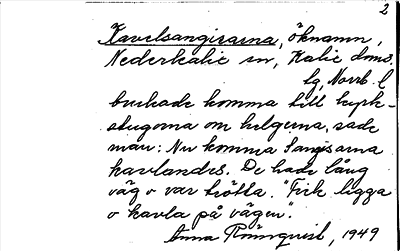 2
Kavelsangisarna, öknamn,
Nederkalix sn, Kalix doms.
fg, Norrb. l
brukade komma till kyrk-
stugorna om helgerna, sade
man: Nu komma Sangisarna
kavlandes. De hade lång
väg o var trötta. "Fick ligga
o kavla på vägen".
Anna 1949